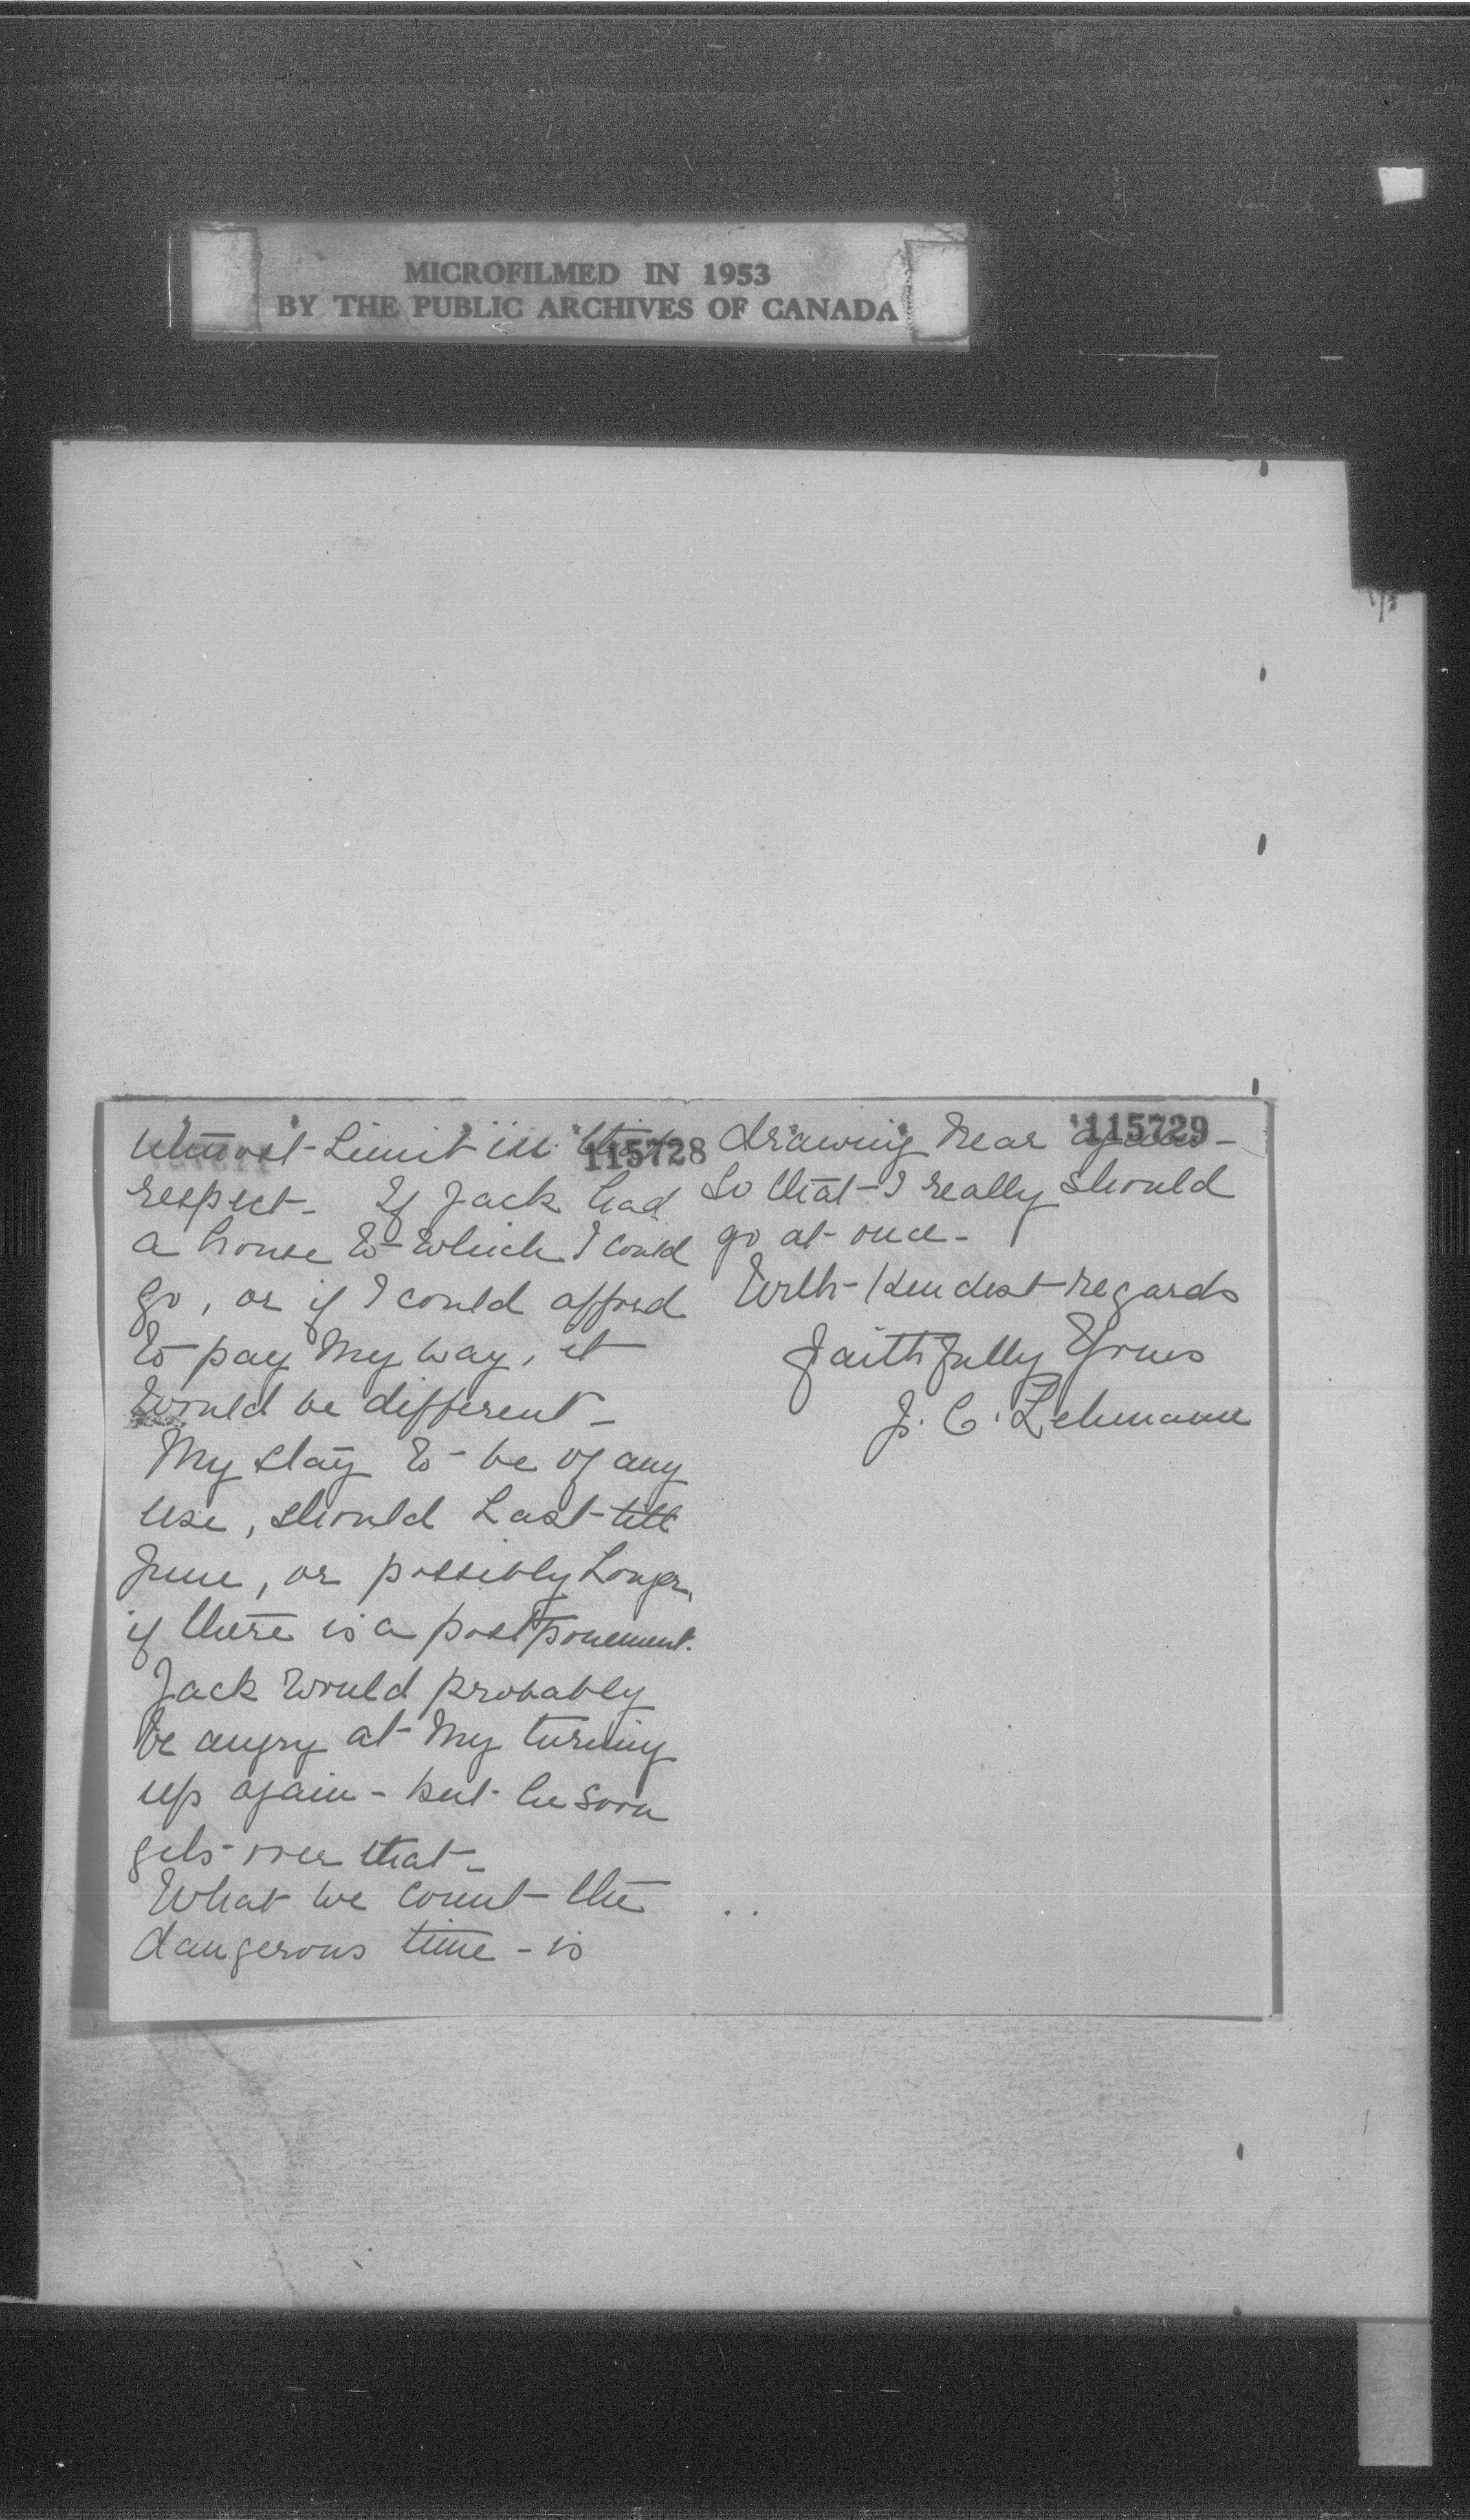 MICROFILMED IN 1953
BY THE PUBLIC ARCHIVES OF CANADA
115728
utmost limit in this
respect - If Jack had
a house to which I could
go, or if I could afford
to pay my way, it
would be different -
My stay to be of any
use, should last till
June, or possibly longer,
if there is a postponement.
Jack would probably
be angry at my turning
up again - but he soon
gets over that -
What we count the
dangerous time - is
115729
drawing near again -
So that I really should
go at once -
With kindest regards
Faithfully Yours
J. C. Lehmann